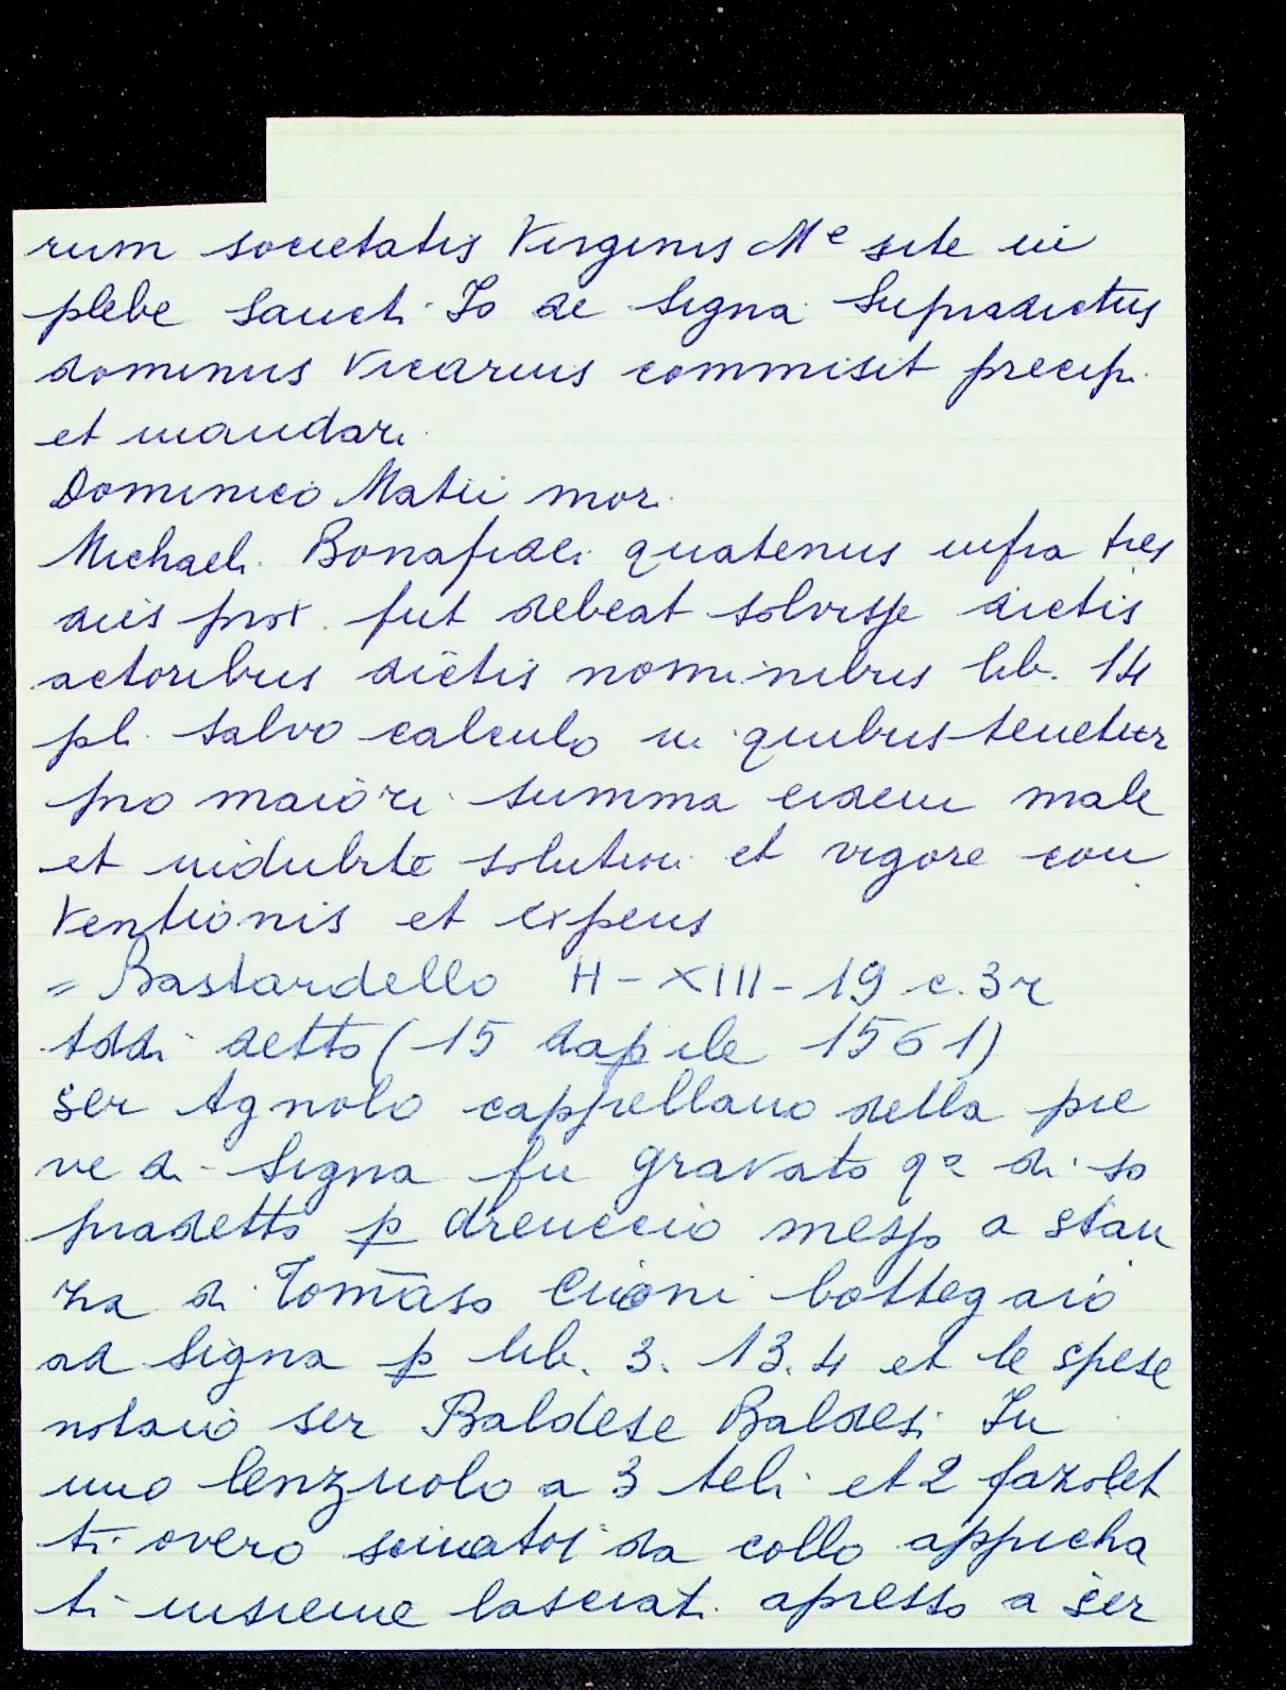 rum societatis Virginis Mᵉ site in
plebe Sancti Jo de Signa Supradictus
dominus Vicarius commisit precip.
et mandari
Dominico Matii mor.
Michaeli Bonafidei quatenus infra tres
dies prox. fut debeat solvisse dictis
actoribus dictis nominibus lib. 14
pli. salvo calculo in quibus tenetur
pro maiori summa eidem male
et indubite solutioni et vigore con
ventionis et expens
= Bastardello H-XIII-19 c. 3r
Addi detto (15 dapile 1561)
ser Agnolo cappellano della pie
ve di Signa fu gravato qᵃ di so
pradetto p drenccio messo a stan
za di Tomaso Cioni bottegaio
ad Signa p lib. 3. 13. 4 et le spese
notaio ser Baldese Baldesi In
uno lenzuolo a 3 teli et 2 fazolet
ti overo da collo appicha
ti insieme lasciati apresso a ser